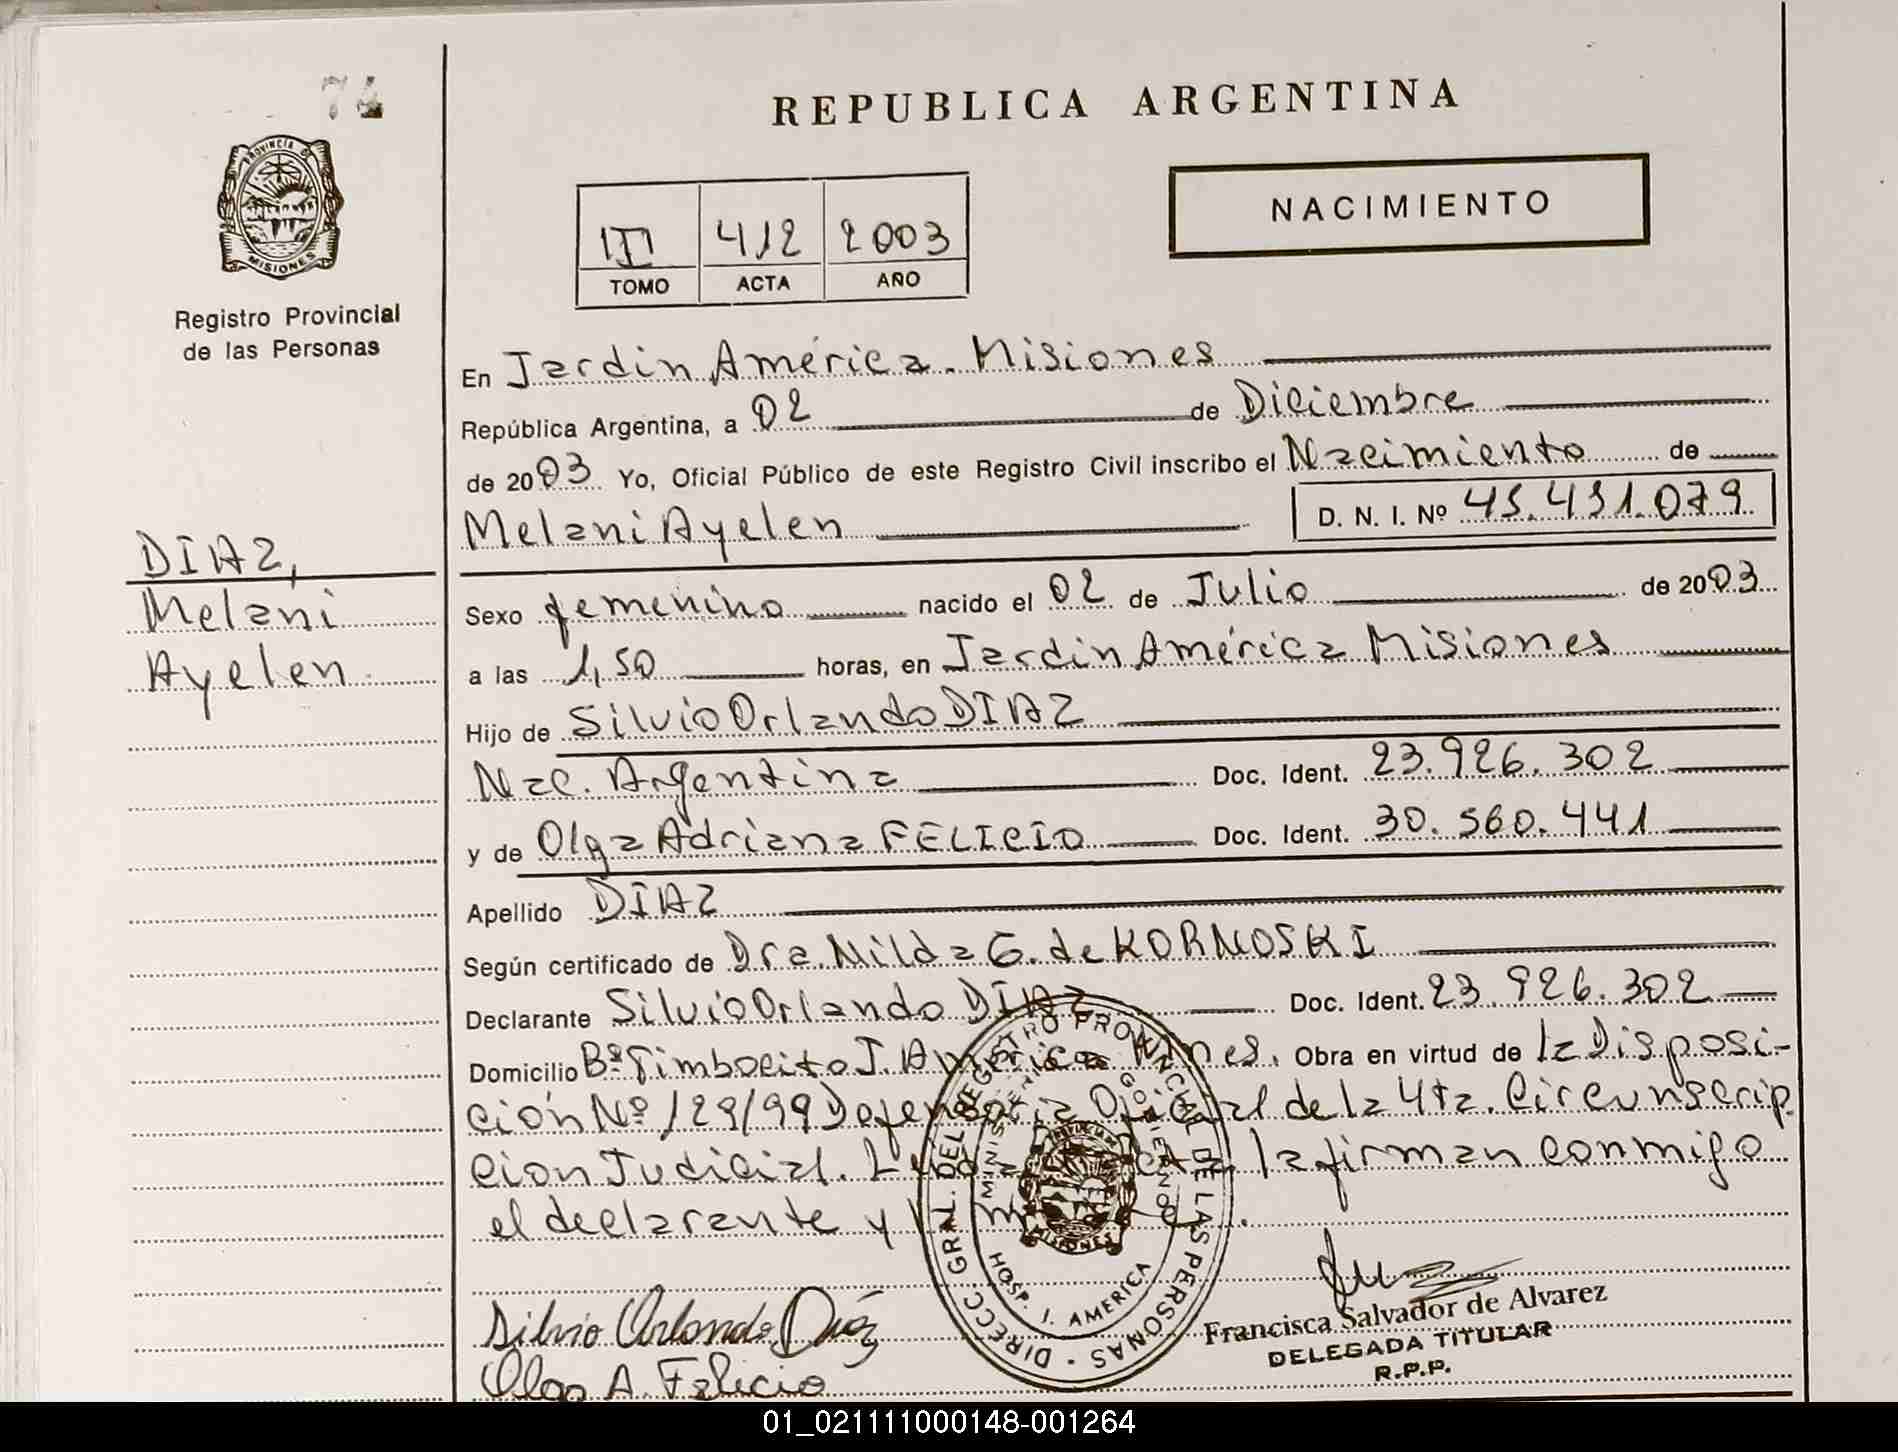 74
REPUBLICA ARGENTINA
PROVINCIA DE
MISIONES
Registro Provincial
de las Personas
III 412 2003
TOMO ACTA AÑO
NACIMIENTO
En Jardin América. Misiones
República Argentina, a 02 de Diciembre
de 2003 Yo, Oficial Público de este Registro Civil inscribo el Nacimiento de
Melani Ayelen D. N. I. Nº 45.431.079
DIAZ,
Melani
Ayelen
Sexo femenino nacido el 02 de Julio de 2003
a las 1,50 horas, en Jardin América Misiones
Hijo de Silvio Orlando DIAZ
Nac. Argentina Doc. Ident. 23.926.302
y de Olga Adriana FELICIO Doc. Ident. 30.560.441
Apellido DIAZ
Según certificado de Dra. Nilda G. de KORNOSKI
Declarante Silvio Orlando DIAZ Doc. Ident. 23.926.302
Domicilio Bº Timbocito J. América Mnes. Obra en virtud de la Disposi-
ción Nº 129/99 Defensoría Oficial de la 4ta. Circunscrip
cion Judicial. la firman conmigo
el declarante y
DIRECC. GRAL. DEL REGISTRO PROVINCIAL DE LAS PERSONAS
MINISTERIO DE GOBIERNO
MISIONES
HOSP. J. AMERICA
Silvio Orlando Diaz
Olga A. Felicio
Francisca Salvador de Alvarez
DELEGADA TITULAR
R.P.P.
01_021111000148-001264